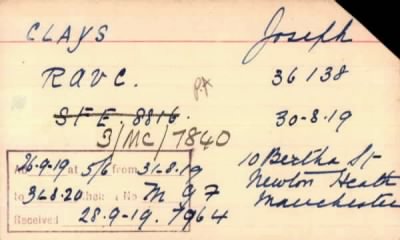 CLAYS Joseph
R.A.V.C. 36138
P.A
S F E. 8816. 30-8-19
3/MC/7840
26-9-19 at 5/6 from 31-8-19 10 Bertha St
to 3-8-20 No M 97 Newton Heath
Manchester
Received 28-9-19. 7964